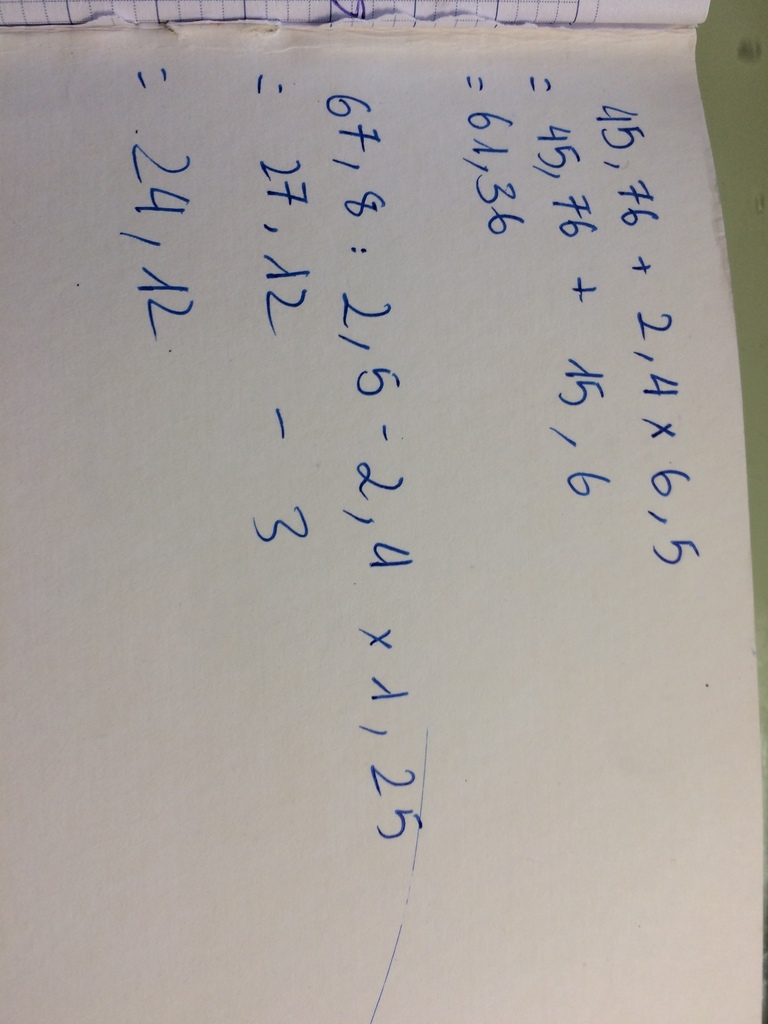 45,76 + 2,4 × 6,5
= 45,76 + 15,6
= 61,36
67,8 : 2,5 - 2,4 × 1,25
= 27,12 - 3
= 24,12